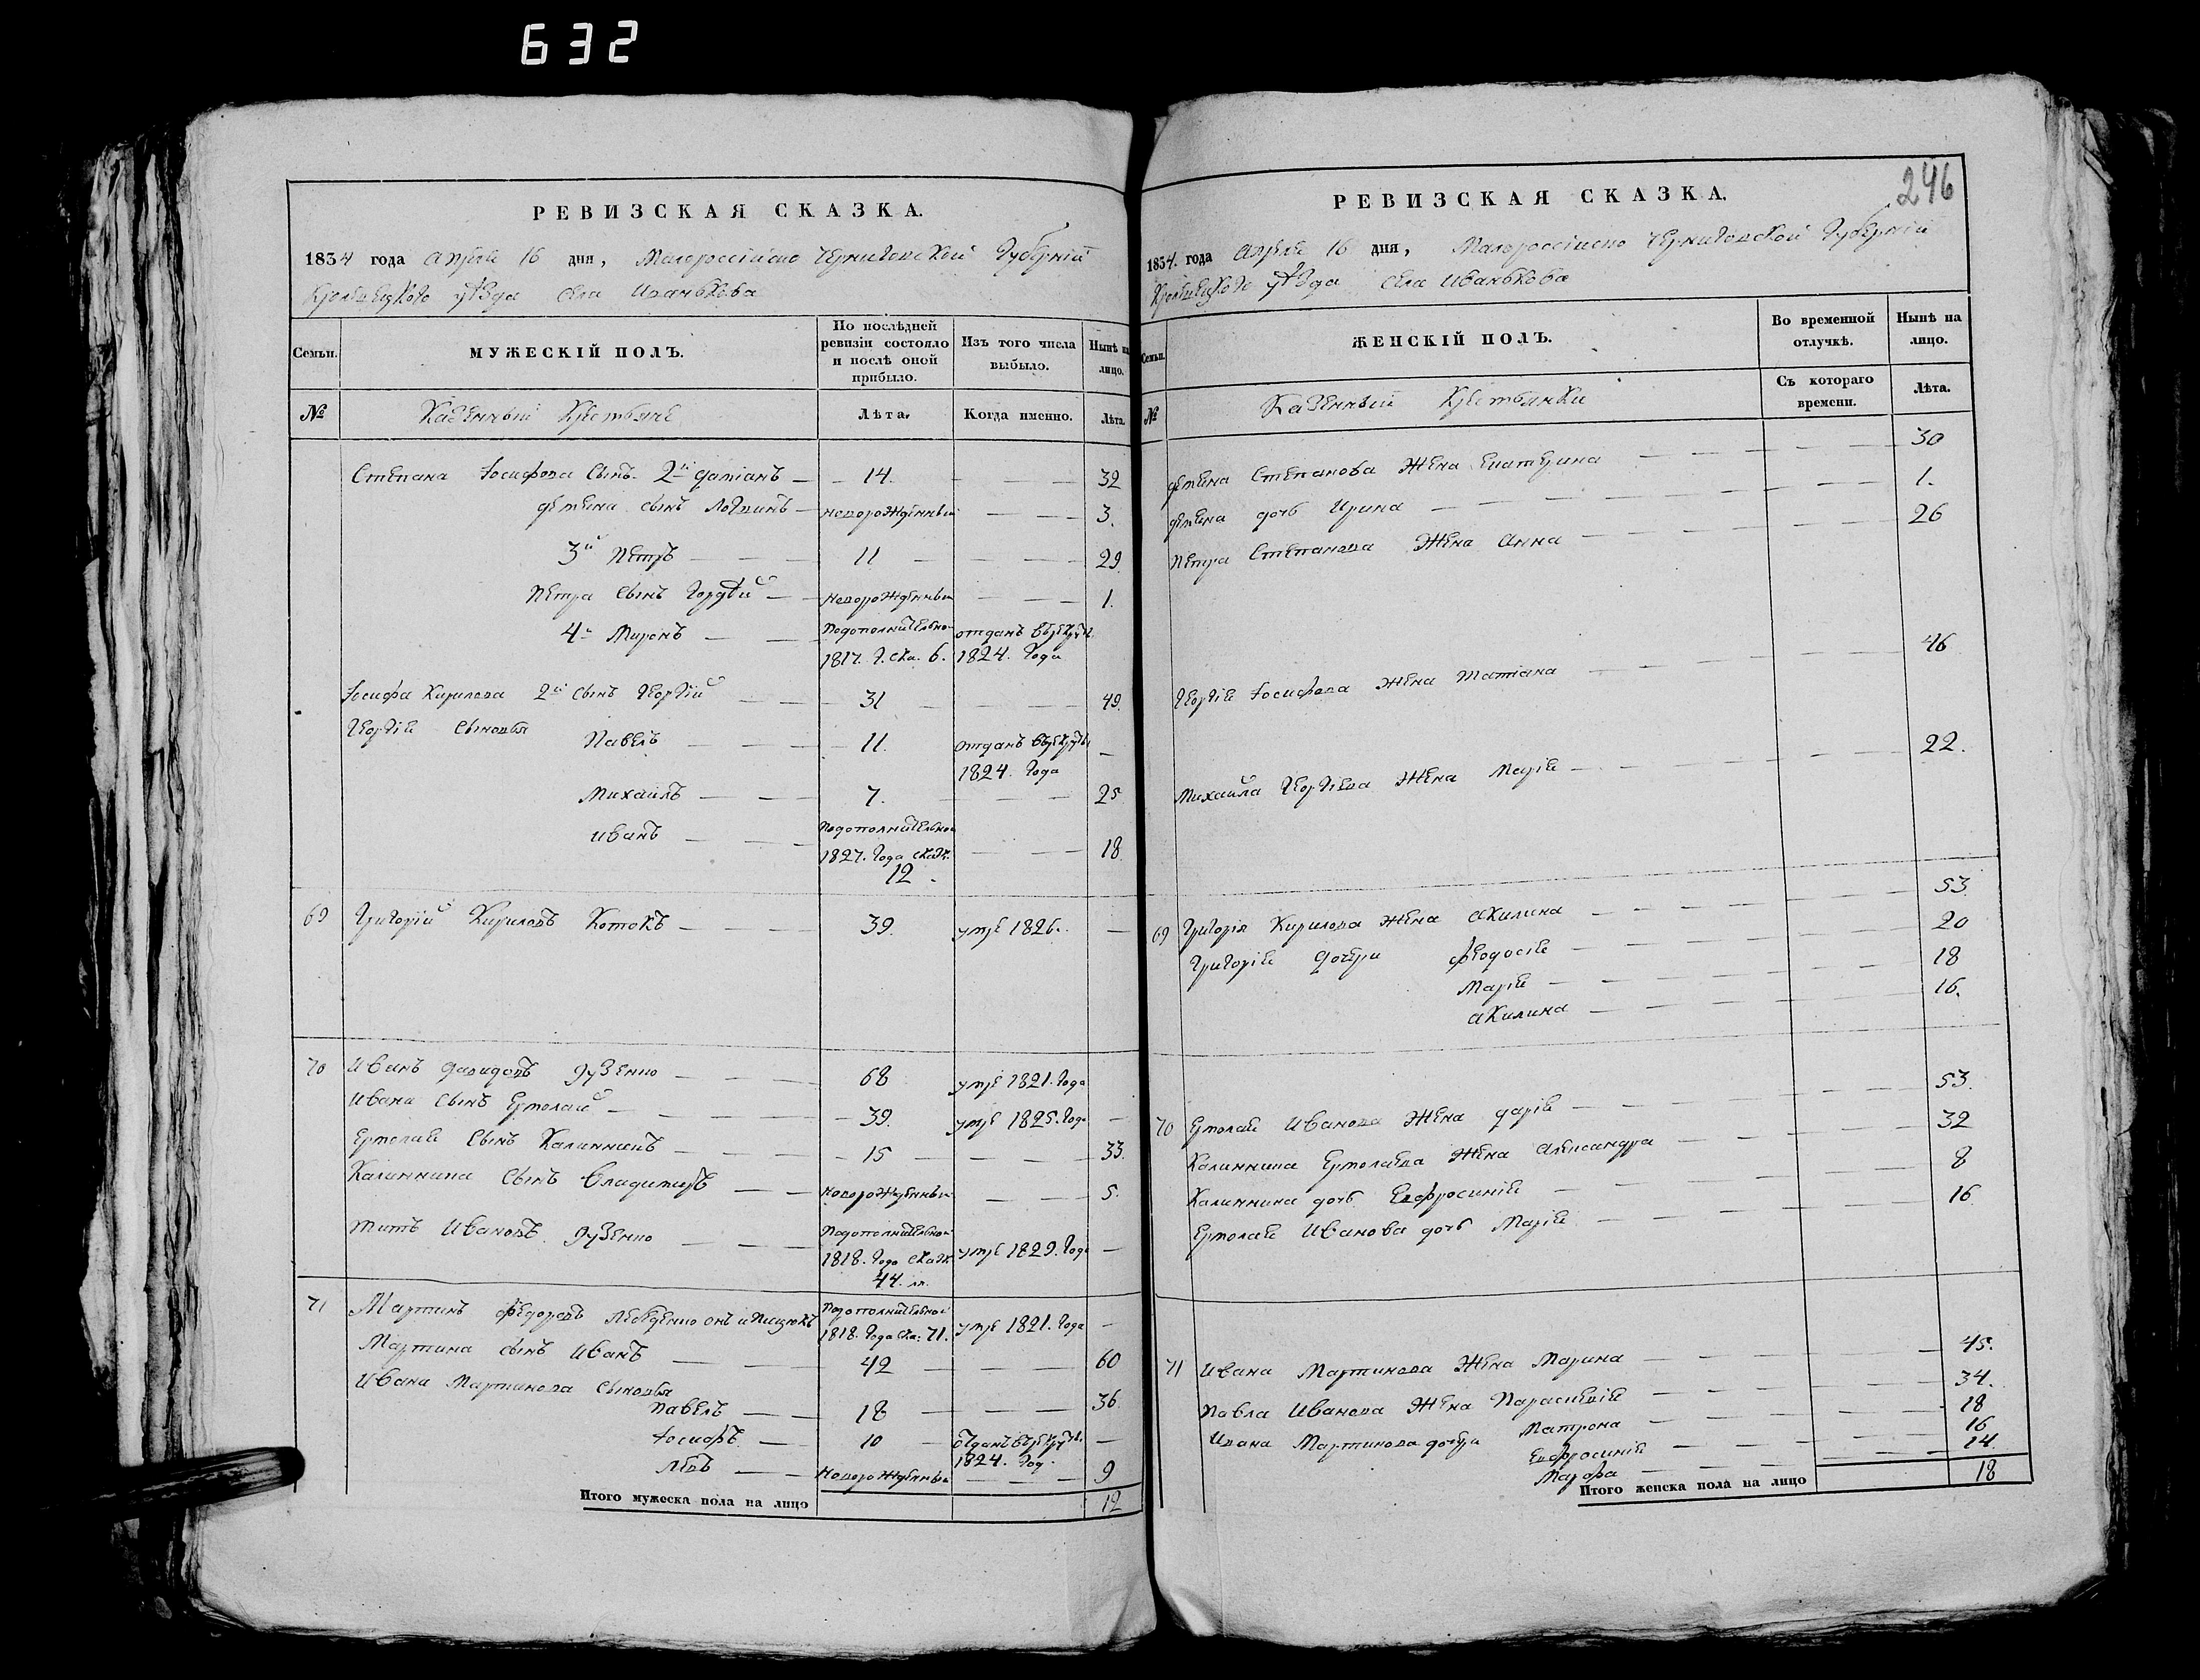 632
РЕВИЗСКАЯ СКАЗКА.
1834 года апреля 16 дня, Малороссийско Черниговской Губернии
Кролевецкого уѣзда села Иванькова
Семьи.
МУЖЕСКІЙ ПОЛЪ.
По послѣдней ревизіи состояло и послѣ оной прибыло.
Изъ того числа выбыло.
Нынѣ на лицо.
№
Казенныи Крестьяне
Лѣта.
Когда именно.
Лѣта.
Степана Іосифова сынъ 2й — 14. — 32
сынъ Логвинъ — новорожденный — 3.
3й Петръ — 11 — 29
Петра сынъ Гордѣй — новорожденный — 1.
4й Миронъ — Подополнительной 1817. г. ска. 6. отданъ въ рекруты 1824. года
Іосифа Кирилова 2й сынъ Георгій — 31 — 49.
Георгія сыновья Павелъ — 11. отданъ в рекруты 1824. года —
Михаилъ — 7. — 25
Иванъ — Подополнительной 1827. года сказк. 12. — 18
69 Григорій Кириловъ Котокъ — 39. умре 1826. —
70 Иванъ Давидовъ — 68 умре 1821. года
Ивана сынъ Ермолай — 39. умре 1825. года —
Ермолая сынъ Калинникъ — 15 — 33.
Калинника сынъ Владимиръ — новорожденный — 5.
Титъ Ивановъ — Подополнительной 1818. года сказк 44. умре 1829. года —
71 Мартинъ Федоровъ Подополнительной 1818. года ска: 71. умре 1821. года —
Мартина сынъ Иванъ — 42 — 60
Ивана Мартинова сыновья
Павелъ — 18 — 36.
Іосифъ — 10 — отданъ в рекруты 1824. год. —
Левъ — новорожденный — 9
Итого мужеска пола на лицо 12
246
РЕВИЗСКАЯ СКАЗКА.
1834. года апреля 16 дня, Малороссийско Черниговской Губернии
Кролевецкого уѣзда села Иванькова
Семьи.
ЖЕНСКІЙ ПОЛЪ.
Во временной отлучкѣ.
Нынѣ на лицо.
№
Казенныи Крестьянки
Съ котораго времени.
Лѣта.
Степанова жена Екатерина — 30
дочь Ирина — 1.
Петра Степанова жена Анна — 26
Георгія Іосифова жена Татіана — 46
Михаила Георгіева жена Марія — 22.
69 Григорія Кирилова жена Акилина — 53
Григорія дочери Феодосія — 20
Марія — 18
Акилина — 16.
70 Ермолая Иванова жена Дарія — 53
Калинника Ермолаева жена Александра — 32
Калинника дочь Евфросинія — 8
Ермолая Иванова дочь Марія — 16
71 Ивана Мартинова жена Марина — 45.
Павла Иванова жена Параскевія — 34.
Ивана Мартинова дочери Матрона — 18
Евфросинія — 16
Марфа — 14
Итого женска пола на лицо 18